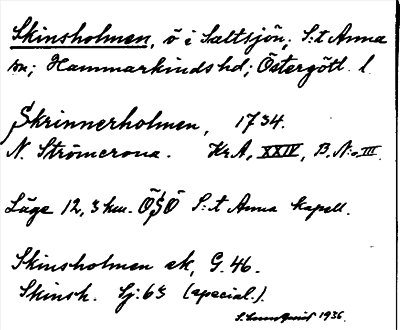 Skinsholmen, ö i Saltsjön; S:t Anna
sn; Hammarkinds hd; Östergötl. l.
Skrinnerholmen, 1734.
N. Strömcrona. Kr.A, XXIV, B. N:o III.
Läge 12,3 km. ÖSÖ S:t Anna kapell.
Skinsholmen ek, G. 46.
Skinsh. Sj: 63 (special.).
1936.